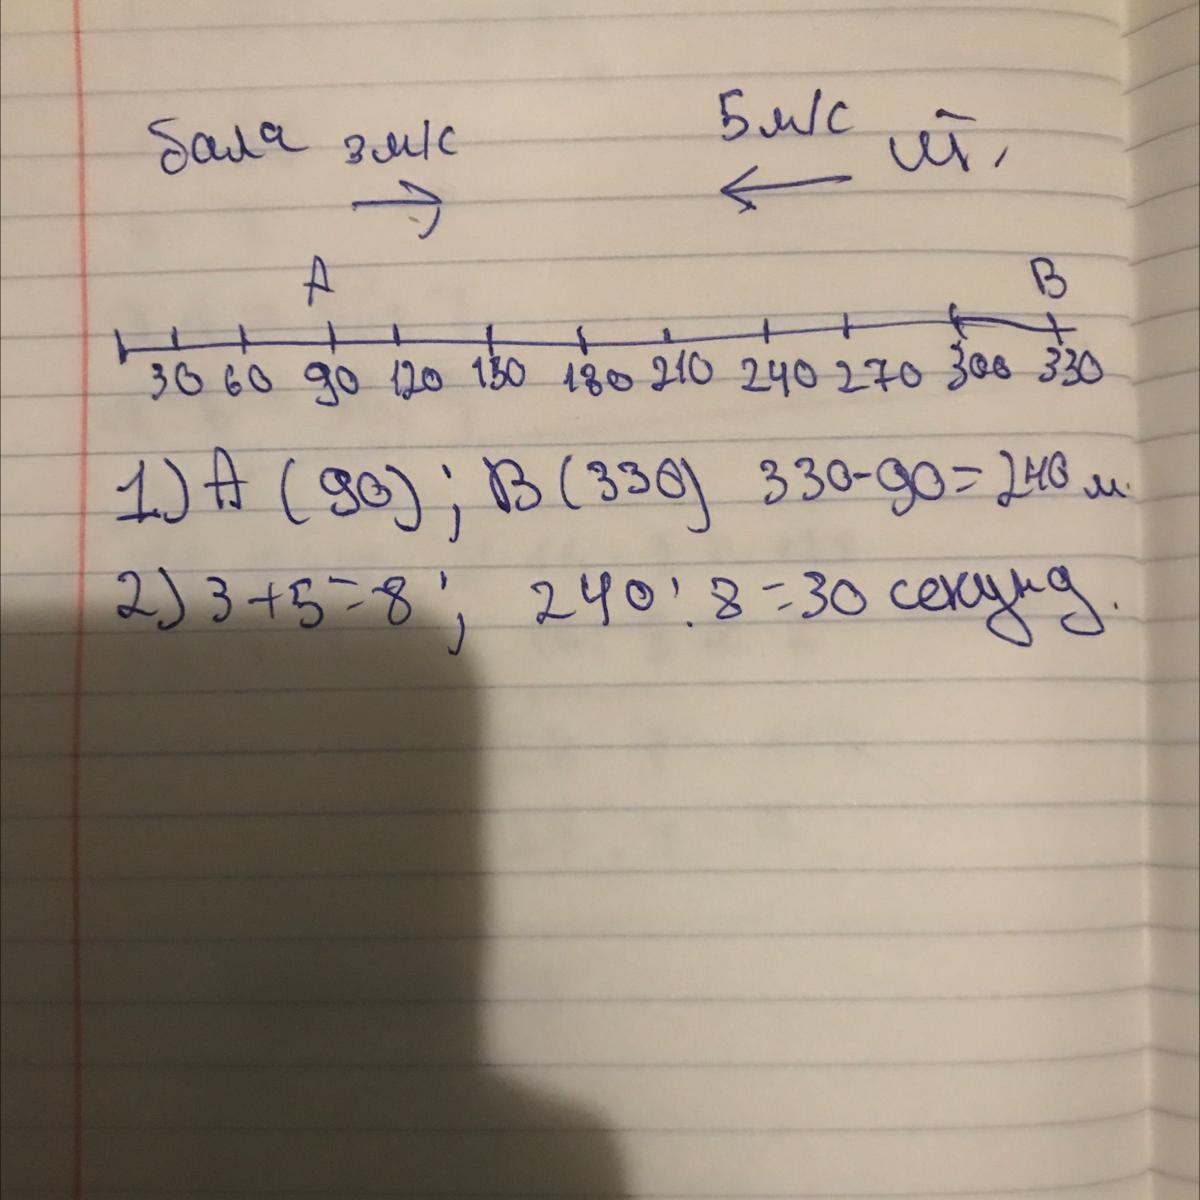 бала 3м/с 5м/с ит,
A B
30 60 90 120 150 180 210 240 270 300 330
1) A (90); B (330) 330-90=240 м.
2) 3+5=8; 240:8=30 секунд.